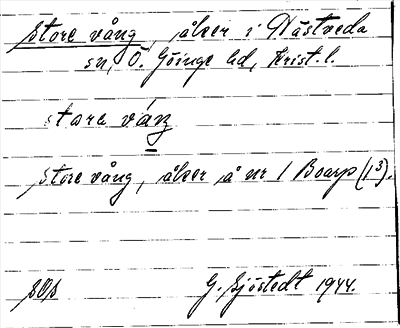 Store vång, åker i Nästveda
sn, Ö. Göinge hd, Krist. l.
stare váŋ
Store vång, åker å nr 1 Boarp (1³).
G. Sjöstedt 1944.